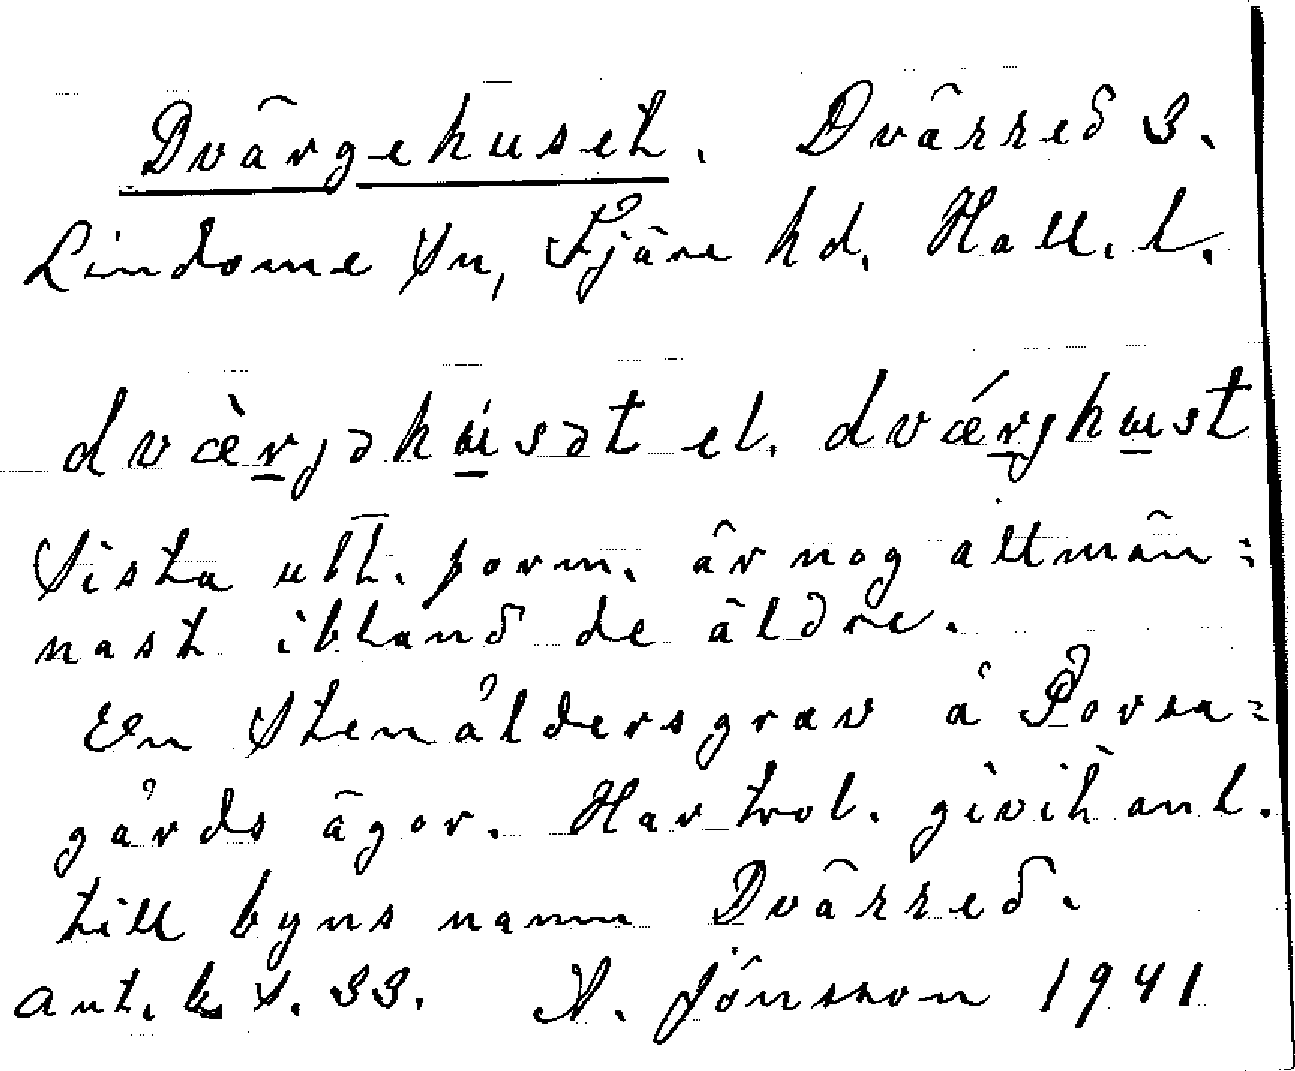 Dvärgehuset. Dvärred 3.
Lindome Sn, Fjäre hd, Hall. l.
dvæ̀r̲jəhú̲sət el. dvǽr̲jhu̲st
Sista utt. form. är nog allmän=
nast ibland de äldre.
En Stenåldersgrav å Torsa=
gårds ägor. Har trol. givit anl.
till byns namn Dvärred.
Ant. b. S. 33. A. Jönsson 1941